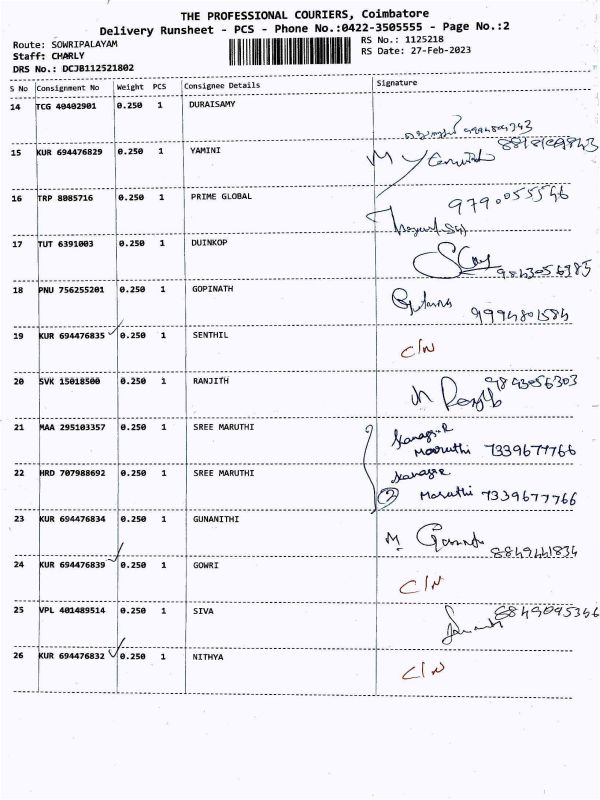 THE PROFESSIONAL COURIERS, Coimbatore
Delivery Runsheet - PCS - Phone No.:0422-3505555 - Page No.:2
Route: SOWRIPALAYAM
RS No.: 1125218
Staff: CHARLY
RS Date: 27-Feb-2023
DRS No.: DCJB112521802
S No Consignment No Weight PCS Consignee Details Signature
14 TCG 40402901 0.250 1 DURAISAMY
15 KUR 694476829 0.250 1 YAMINI
16 TRP 8085716 0.250 1 PRIME GLOBAL 9790055546
17 TUT 6391003 0.250 1 DUINKOP
9843056385
18 PNU 756255201 0.250 1 GOPINATH
9994801584
19 KUR 694476835 0.250 1 SENTHIL
C/N
20 SVK 15018500 0.250 1 RANJITH 9843056303
21 MAA 295103357 0.250 1 SREE MARUTHI
Maruthi 7339677766
22 HRD 707988692 0.250 1 SREE MARUTHI
2 Maruthi 7339677766
23 KUR 694476834 0.250 1 GUNANITHI
M
8849441834
24 KUR 694476839 0.250 1 GOWRI
C/N
25 VPL 401489514 0.250 1 SIVA 8849095346
26 KUR 694476832 0.250 1 NITHYA
C/N